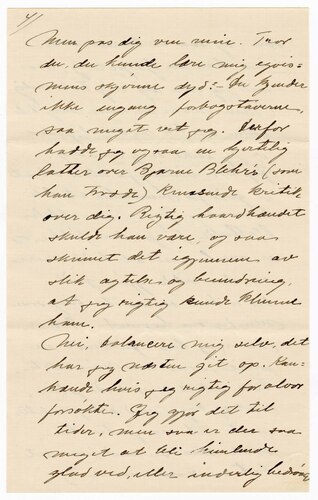 4/
Men pas dig ven min. Tror
du, du kunde lære mig egois-
mens skjønne dyd? – Du kjender
ikke engang forbogstaverne,
saa meget vet jeg. Derfor
hadde jeg ogsaa en hjertelig
latter over Bjarne Blehr's (som
han trode) knusende kritik
over dig. Rigtig haardhændet
skulde han være, og saa
skinnet det igjennem av
slik agtelse og beundring,
at jeg rigtig kunde klemme
ham.
Nei, balancere mig selv, det
har jeg næsten git op. Kan-
hænde hvis jeg rigtig for alvor
forsøkte. Jeg gjør det til
tider, men saa er der saa
meget at bli himlende
glad ved, eller inderlig bedrøvet